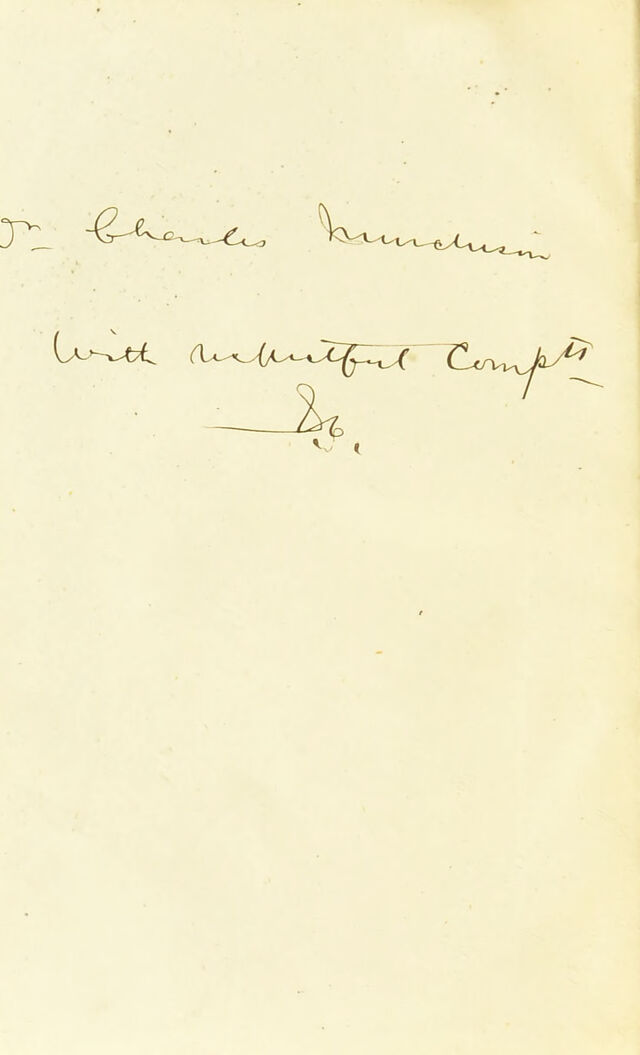 Dr Charles Murchison
With respectful Compts